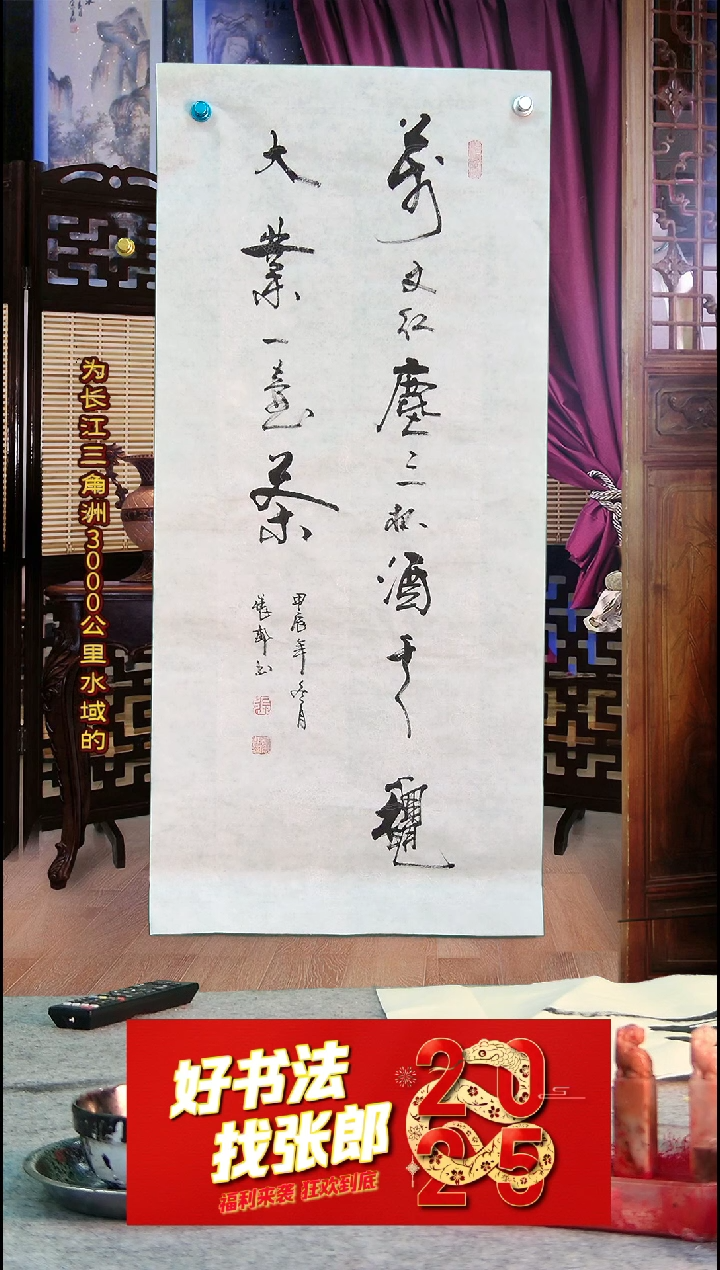 萬丈红塵三杯酒千龝
大業一壺茶
甲辰年冬月
为长江三角洲3000公里水域的
好书法
找张郎
福利来袭 狂欢到底
20
25